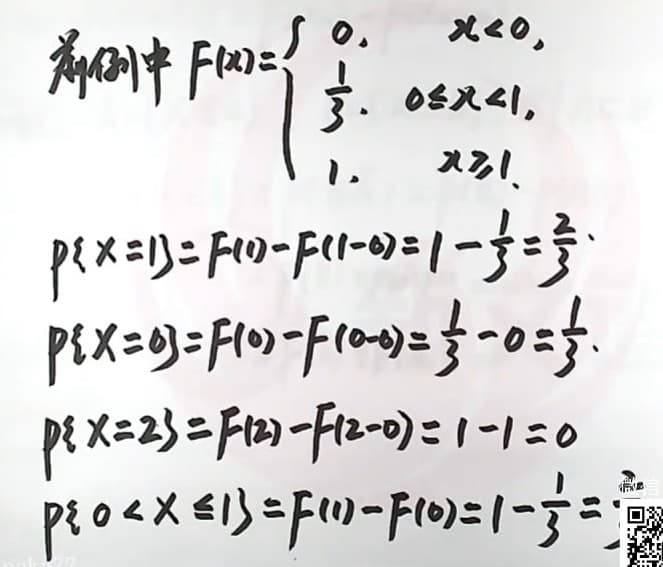 前例中 F(x)= { 0, x<0,
1/3. 0≤x<1,
1. x≥1.
P{X=1}=F(1)-F(1-0)=1-1/3=2/3.
P{X=0}=F(0)-F(0-0)=1/3-0=1/3.
P{X=2}=F(2)-F(2-0)=1-1=0
P{0<X≤1}=F(1)-F(0)=1-1/3=